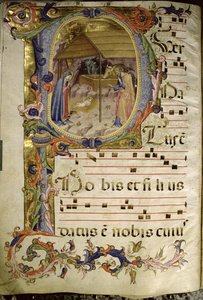 Uer
Na
tus ē
No bis et fili us
datus ē nobis cuiu